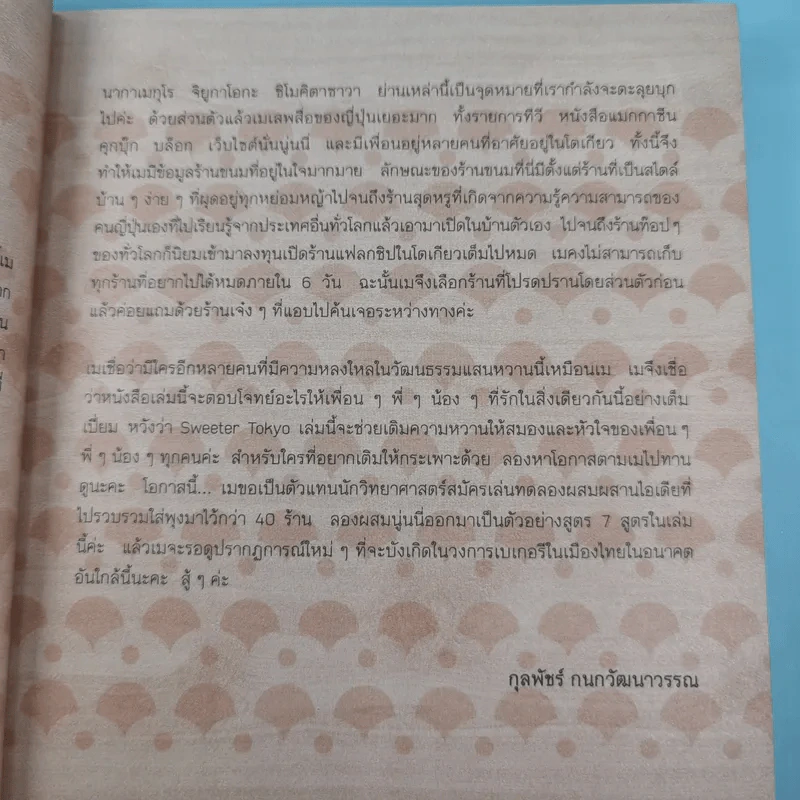 นากาเมกุโร จิยูกาโอกะ ชิโมคิตาซาวา ย่านเหล่านี้เป็นจุดหมายที่เรากำลังจะตะลุยบุก
ไปค่ะ ด้วยส่วนตัวแล้วเมเสพสื่อของญี่ปุ่นเยอะมาก ทั้งรายการทีวี หนังสือแมกกาซีน
คุกบุ๊ก บล็อก เว็บไซต์นั่นนู่นนี่ และมีเพื่อนอยู่หลายคนที่อาศัยอยู่ในโตเกียว ทั้งนี้จึง
ทำให้เมมีข้อมูลร้านขนมที่อยู่ในใจมากมาย ลักษณะของร้านขนมที่นี่มีตั้งแต่ร้านที่เป็นสไตล์
บ้าน ๆ ง่าย ๆ ที่ผุดอยู่ทุกหย่อมหญ้าไปจนถึงร้านสุดหรูที่เกิดจากความรู้ความสามารถของ
คนญี่ปุ่นเองที่ไปเรียนรู้จากประเทศอื่นทั่วโลกแล้วเอามาเปิดในบ้านตัวเอง ไปจนถึงร้านท็อปๆ
ของทั่วโลกก็นิยมเข้ามาลงทุนเปิดร้านแฟลกชิปในโตเกียวเต็มไปหมด เมคงไม่สามารถเก็บ
ทุกร้านที่อยากไปได้หมดภายใน 6 วัน ฉะนั้นเมจึงเลือกร้านที่โปรดปรานโดยส่วนตัวก่อน
แล้วค่อยแถมด้วยร้านเจ๋ง ๆ ที่แอบไปค้นเจอระหว่างทางค่ะ
เมเชื่อว่ามีใครอีกหลายคนที่มีความหลงใหลในวัฒนธรรมแสนหวานนี้เหมือนเม เมจึงเชื่อ
ว่าหนังสือเล่มนี้จะตอบโจทย์อะไรให้เพื่อน ๆ พี่ ๆ น้อง ๆ ที่รักในสิ่งเดียวกันนี้อย่างเต็ม
เปี่ยม หวังว่า Sweeter Tokyo เล่มนี้จะช่วยเติมความหวานให้สมองและหัวใจของเพื่อนๆ
พี่ ๆ น้อง ๆ ทุกคนค่ะ สำหรับใครที่อยากเติมให้กระเพาะด้วย ลองหาโอกาสตามเมไปทาน
ดูนะคะ โอกาสนี้... เมขอเป็นตัวแทนนักวิทยาศาสตร์สมัครเล่นทดลองผสมผสานไอเดียที่
ไปรวบรวมใส่พุงมาไว้กว่า 40 ร้าน ลองผสมนู่นนี่ออกมาเป็นตัวอย่างสูตร 7 สูตรในเล่ม
นี้ค่ะ แล้วเมจะรอดูปรากฏการณ์ใหม่ ๆ ที่จะบังเกิดในวงการเบเกอรีในเมืองไทยในอนาคต
อันใกล้นี้นะคะ สู้ ๆ ค่ะ
กุลพัชร์ กนกวัฒนาวรรณ